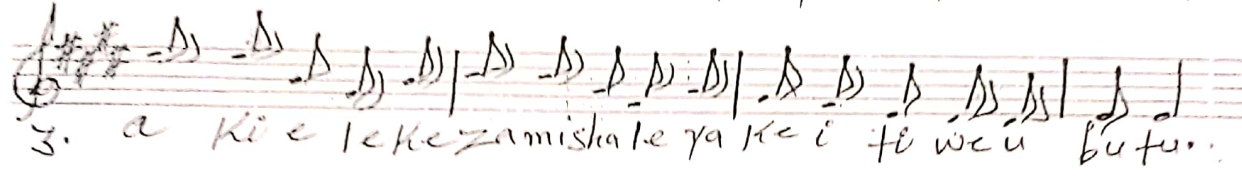 3. a ki e le ke za mi sha le ya ke i ti we u bu tu..